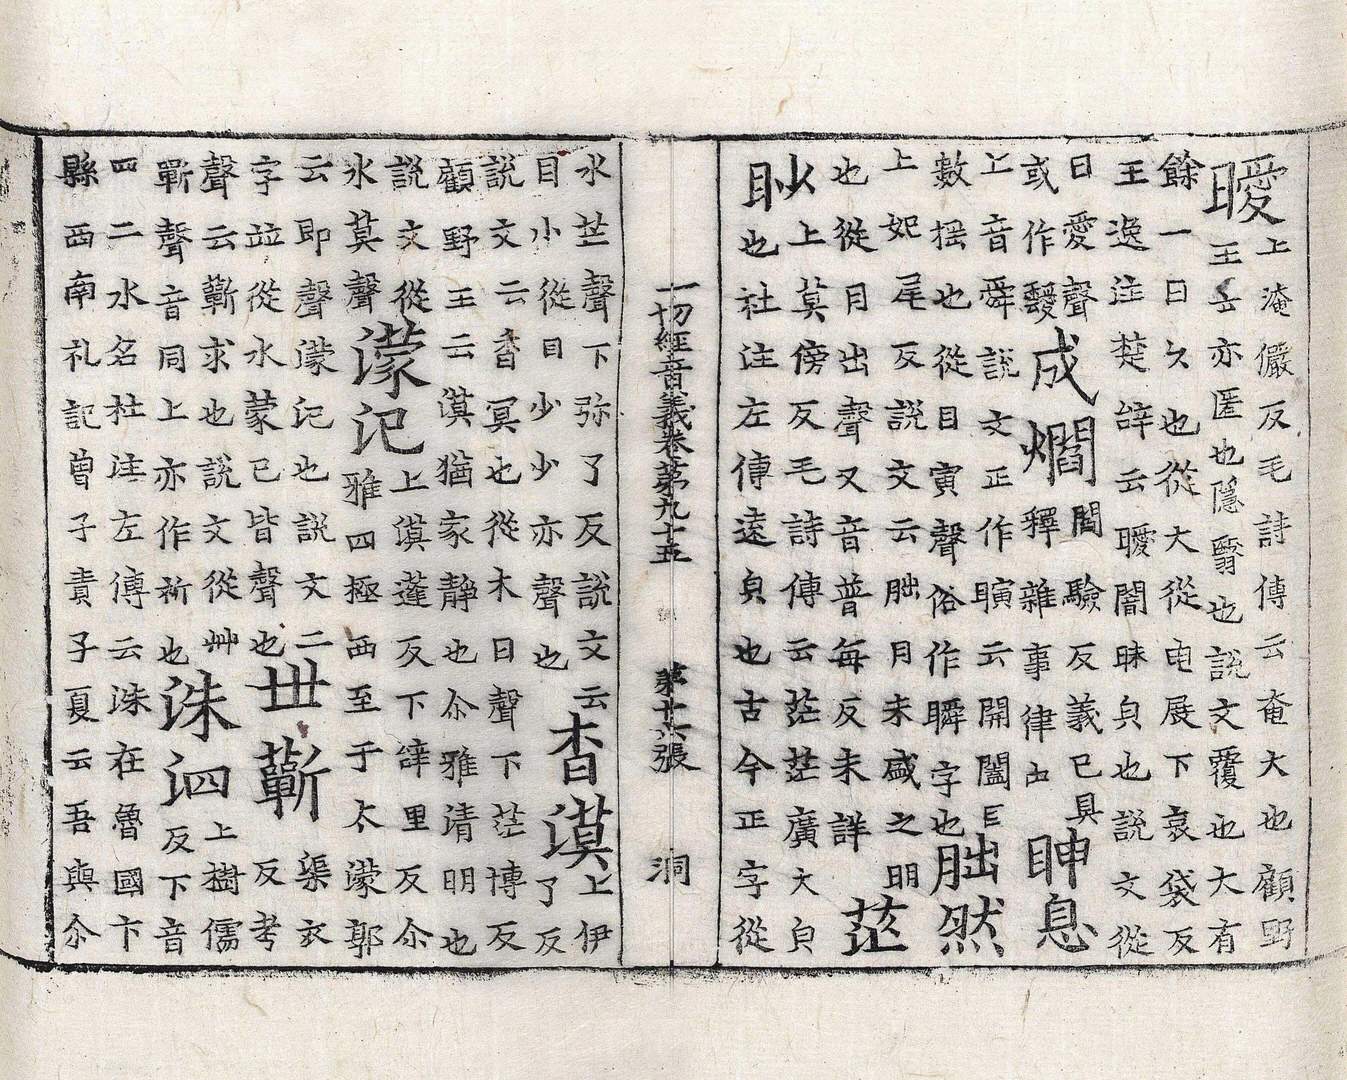 曖上淹儼反毛詩傳云奄大也顧野
王云亦匿也隱翳也說文覆也大有
餘一曰久也從大從电展下哀袋反
王逸注楚辝云曖闇昧皃也說文從
日愛聲
或作靉成爓閻驗反義已具釋雜事律出䀢息
上音舜說文正作瞚云開闔目
數揺也從目寅聲俗作瞬字也朏然
上妃尾反說文云朏月未盛之明
也從月出聲又音普每反未詳茫
眇上莫傍反毛詩傳云茫茫廣大皃
也社注左傳遠皃也古今正字從
一切經音義卷苐九十五 苐十六張 洞
水芒聲下弥了反說文云
目小從目少少亦聲也杳漠上伊了反
說文云杳冥也從木日聲下茫博反
顧野王云漠猶家静也尒雅清明也
說文從
水莫聲濛汜上濛蓬反下辝里反尒雅四極西至于太濛郭
云即聲濛汜也說文二
字竝從水蒙已皆聲也丗蘄渠衣反考
聲云蘄求也說文從艸
蘄聲音同上亦作祈也洙泗上樹儒反下音
四二水名杜注左傳云洙在魯國卞
縣西南礼記曾子責子夏云吾與尒